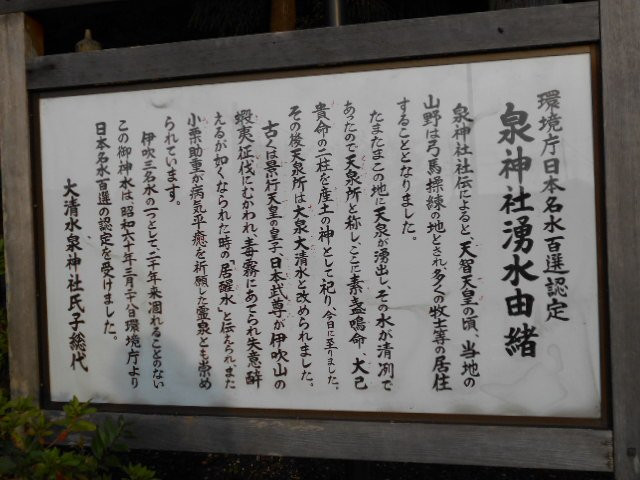 環境庁日本名水百選認定
泉神社湧水由緒
泉神社社伝によると、天智天皇の頃、当地の
山野は弓馬操練の地とされ多くの牧士等の居住
することとなりました。
たまたまこの地に天泉が湧出し、その水が清冽で
あったので天泉所と称し、ここに素盞嗚命、大己
貴命の二柱を産土の神として祀り、今日に至りました。
その後天泉所は大泉大清水と改められました。
古くは景行天皇の皇子、日本武尊が伊吹山の
蝦夷征伐にむかわれ、毒霧にあてられ失意酔
えるが如くなられた時の「居醒水」と伝えられ、また
小栗助重が病気平癒を祈願した霊泉とも崇め
られています。
伊吹三名水の一つとして、二千年来涸れることのない
この御神水は、昭和六十年三月二十八日環境庁より
日本名水百選の認定を受けました。
大清水泉神社氏子総代